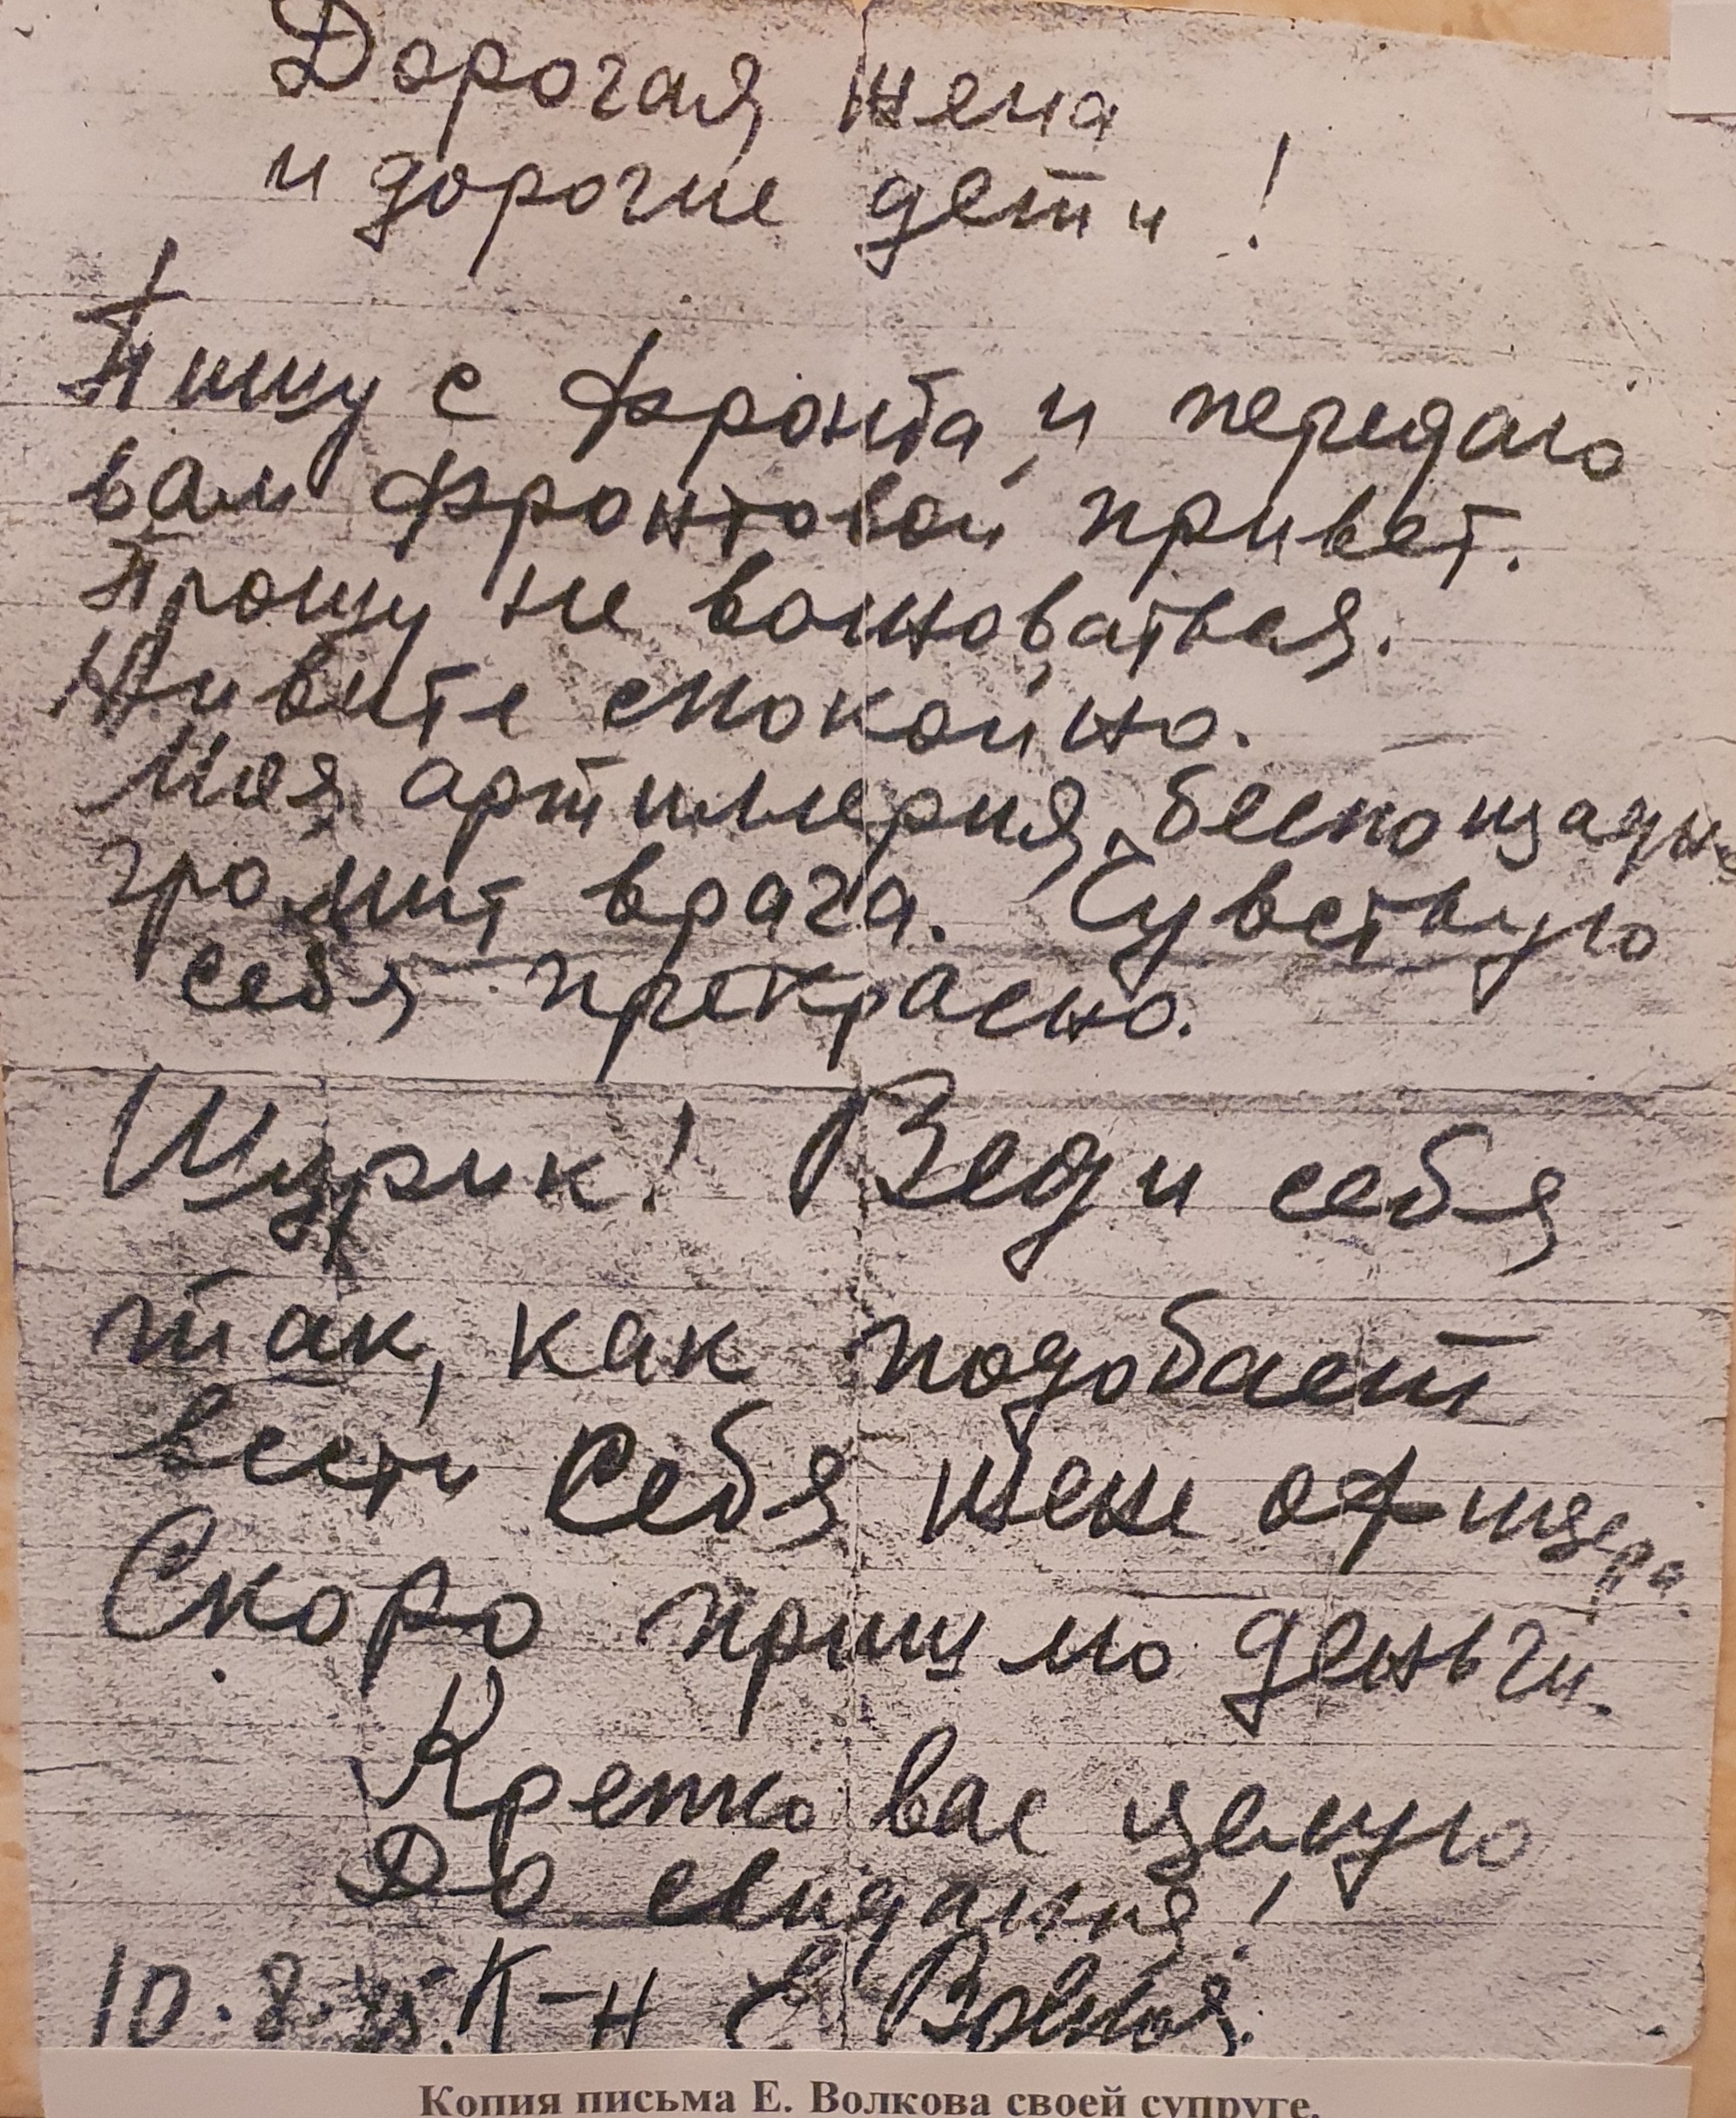 Дорогая жена
и дорогие дети!
Пишу с фронта и передаю
вам фронтовой привет.
Прошу не волноваться.
Живите спокойно.
Моя артиллерия беспощадно
громит врага. Чувствую
себя прекрасно.
Шурик! Веди себя
так, как подобает
вести себя жене офицера.
Скоро пришлю деньги.
Крепко вас целую
До свидания!
10.8. К-н Е Волков.
Копия письма Е. Волкова своей супруге.